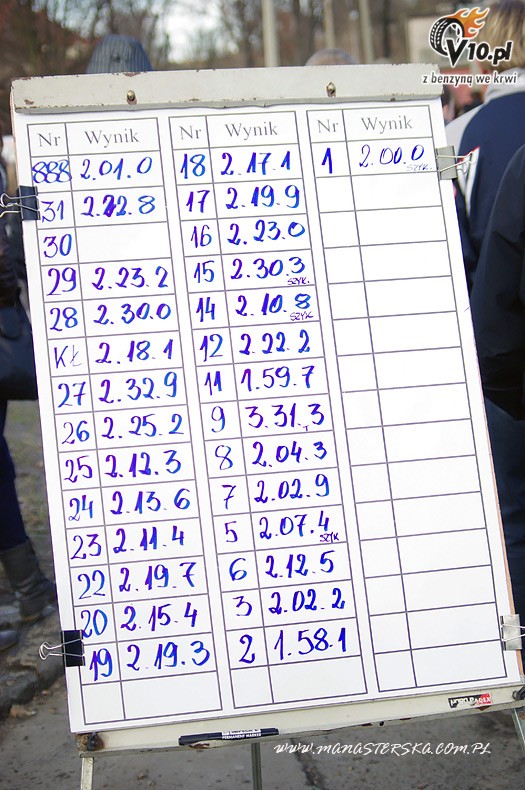 V10.pl
z benzyną we krwi
Nr Wynik
888 2.01.0
31 2.22.8
30
29 2.23.2
28 2.30.0
KŁ 2.18.1
27 2.32.9
26 2.25.2
25 2.12.3
24 2.13.6
23 2.11.4
22 2.19.7
20 2.15.4
19 2.19.3
Nr Wynik
18 2.17.1
17 2.19.9
16 2.23.0
15 2.30.3
SZYK.
14 2.10.8
SZYK
12 2.22.2
11 1.59.7
9 3.31.3
T
8 2.04.3
7 2.02.9
5 2.07.4
SZYK
6 2.12.5
3 2.02.2
2 1.58.1
Nr Wynik
1 2.00.0
SZYK.
PERMANENT MARKER
www.manasterska.com.pl